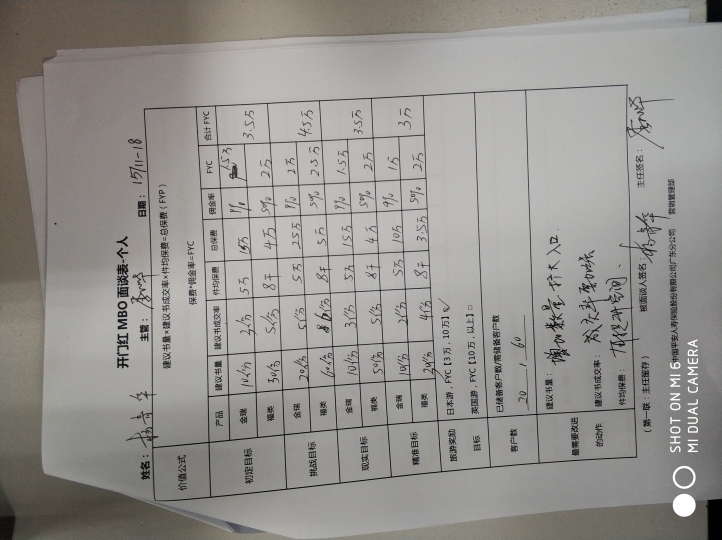 开门红 MBO 面谈表-个人
姓名： 主管： 日期：15/11-18
价值公式 建议书量×建议书成交率×件均保费=总保费（FYP）
保费*佣金率=FYC
产品 建议书量 建议书成交率 件均保费 总保费 佣金率 FYC 合计 FYC
初定目标 金瑞 10份 3份 5万 15万 9% 1.5万 3.5万
福类 30份 5份 8千 4万 50% 2万
挑战目标 金瑞 20份 5份 5万 25万 9% 2万 4.5万
福类 60份 6份 8千 5万 50% 2.5万
现实目标 金瑞 10份 3份 5万 15万 9% 1.5万 3.5万
福类 50份 5份 8千 4万 50% 2万
精准目标 金瑞 10份 2份 5万 10万 9% 1万 3万
福类 20份 4份 8千 3.5万 50% 2万
旅游奖励 日本游，FYC【3万，10万】☑
目标 英国游，FYC【10万，以上】□
客户数 已储备客户数/需储备客户数
20 / 60
最需要改进 建议书量：增加数量 扩大入口.
的动作 建议书成交率：成交率要加强
件均保费：有提升空间.
（第一联：主任留存） 被面谈人签名： 主任签名：
中国平安人寿保险股份有限公司广东分公司 营销管理部
SHOT ON MI 6
MI DUAL CAMERA